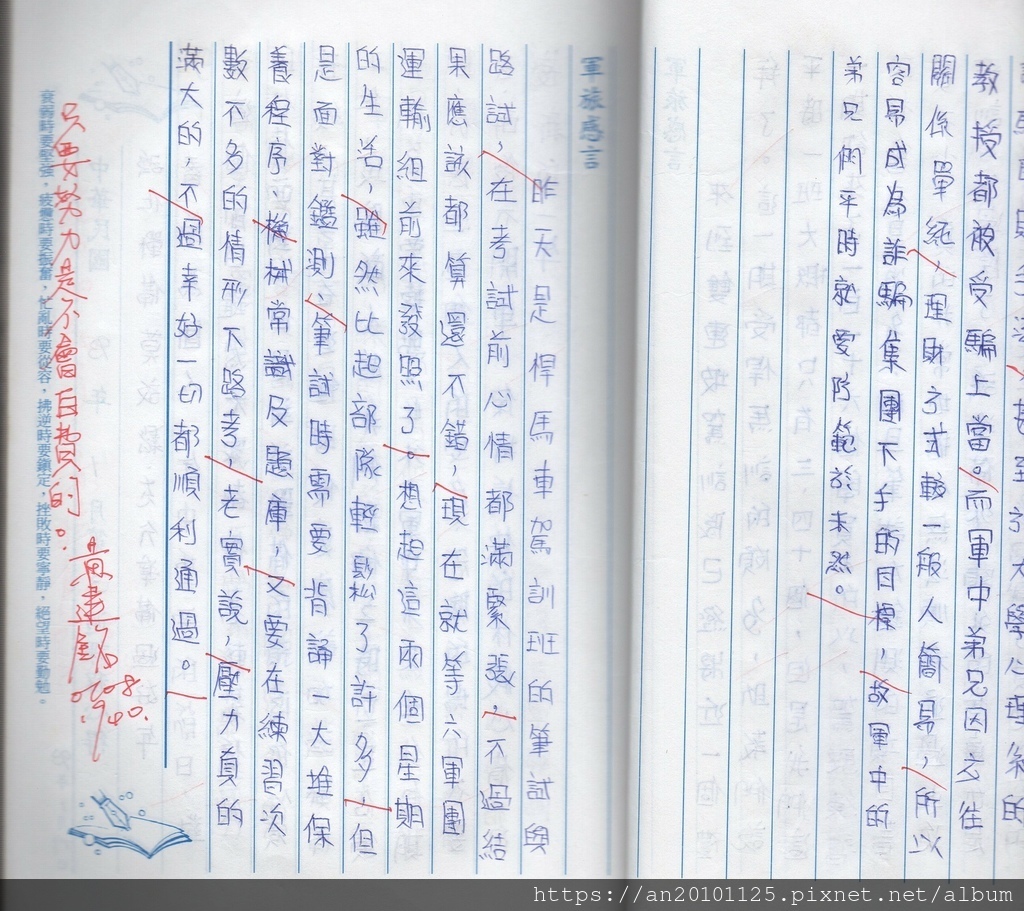 教授都被受騙上當。而軍中弟兄因交往
關係單純，理財方式較一般人簡易，所以
容易成為詐騙集團下手的目標，故軍中的
弟兄們平時就要防範於未然。
軍旅感言
昨天是悍馬車駕訓班的筆試與
路試，在考試前心情都滿緊張，不過結
果應該都算還不錯，現在就等六軍團
運輸組前來發照了。想起這兩個星期
的生活，雖然比起部隊輕鬆了許多，但
是面對鑑測，筆試時需要背誦一大堆保
養程序、機械常識及題庫，又要在練習次
數不多的情形下路考，老實說，壓力真的
滿大的，不過幸好一切都順利通過。
只要努力是不會白費的。
黃建銘
0708
1940.
衰弱時要堅強，疲憊時要振奮，忙亂時要從容，拂逆時要鎮定，挫敗時要寧靜，絕望時要勤勉。
https://an20101125.pixnet.net/album